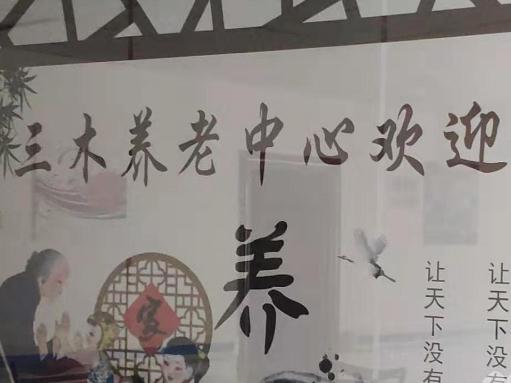 三木养老中心欢迎
养
让天下没有
让天下没有